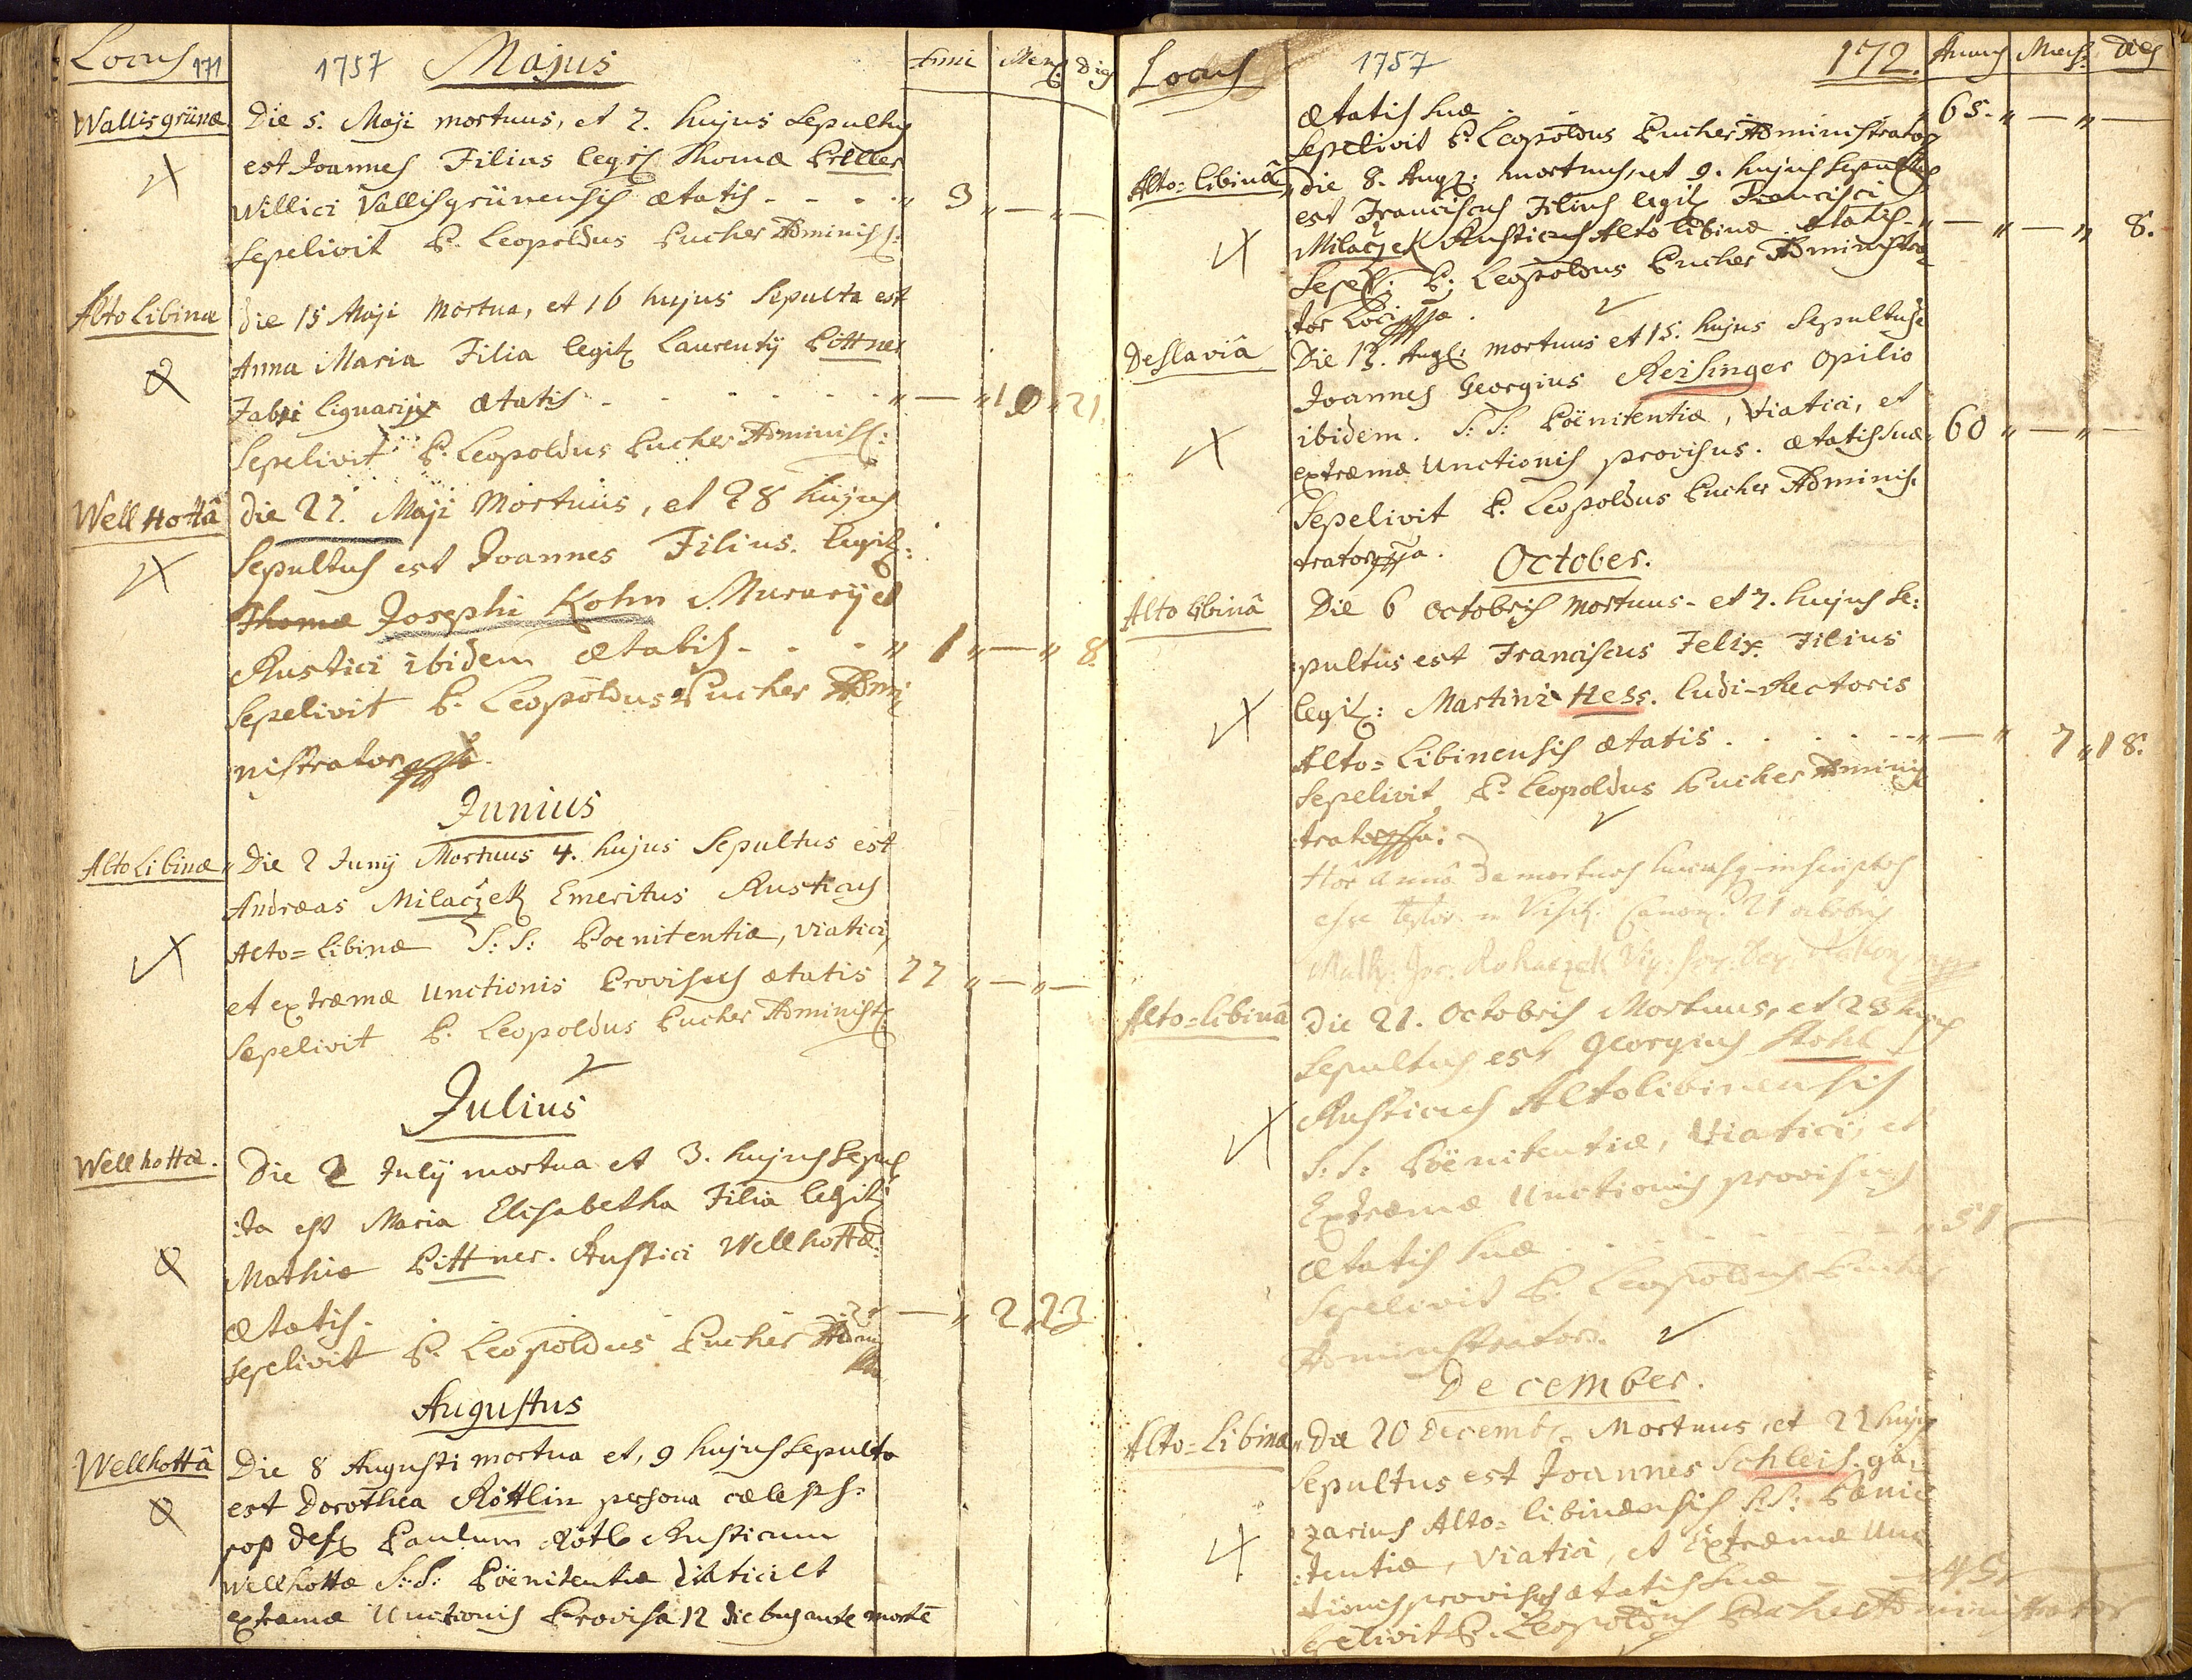 Locus 171
1757 Majus
Anni Mens: Dies
Wallisgrünæ
Die 5. Maji mortuus, et 7. hujus Sepultus
est Joannes Filius legit: Thomæ Priller
Willici Vallisgrünensis ætatis - - - - " 3 " — " —
Sepelivit P. Leopoldus Pucher Adminis:
Alto Libinæ
die 15 Maji Mortua, et 16 hujus Sepulta est
Anna Maria Filia legit: Laurentij Pittner
Fabri lignarij ætatis - - - - - - " — " 10 " 21
Sepelivit P. Leopoldus Pucher Adminis:
Wellhottâ
die 27. Maji Mortuus, et 28 hujus
Sepultus est Joannes Filius. legit:
Thomæ Josephi Kohn Murarij et
Rustici ibidem ætatis - - - " 1 " — " 8.
Sepelivit P. Leopoldus Pucher Admi
nistrator
Junius
Alto Libinæ
" Die 2 Junij Mortuus 4. hujus Sepultus est
Andræas Milaczek Emeritus Rusticus
Alto=Libinæ S: S: Poenitentiæ, viatici,
et extræmæ Unctionis Provisus ætatis 77 " — " —
Sepelivit P. Leopoldus Pucher Administ:
Julius
Wellhottæ.
Die 2 Julij mortua et 3. hujus Sepul
:ta est Maria Elisabetha Filia legit:
Mathiæ Pittner. Rustici Wellhottæ.
ætatis. - - - - — " 2 " 23
Sepelivit P. Leopoldus Pucher Adm
Augustus
Wellhottâ
Die 8 Augusti mortua et, 9 hujus Sepulta
est Dorothea Röttlin persona cælebs:
post def: Paulum Rötl Rusticum
Wellhottæ S: S: Pöenitentiæ viatici et
extræmæ Unctionis Provisa 12 diebus ante mortē
Locus
1757
172. Annus Mens: Dies
ætatis suæ " 65. " — " —
Sepelivit P. Leopoldus Pucher Administrator
Alto=libinâ
" die 8. Aug: mortuus, et 9. hujus Sepultus
est Franciscus Filius legit: Francisci
Milaczek Rusticus Alto libinæ. ætatis - " — " — " 8.
Sepel: P: Leopoldus Pucher Administra
tor Loci
Deslaviâ
Die 13. Aug: mortuus et 15. hujus Sepultus e
Joannes Georgius Reisinger opilio
ibidem. S: S: Pöenitentiæ, viatici, et
extræmæ Unctionis provisus. ætatis suæ " 60 " — " —
Sepelivit P. Leopoldus Pucher Adminis.
trator
October.
Alto libinâ
Die 6 octobris mortuus - et 7. hujus Se:
:pultus est Franciscus Felix. Filius
legit: Martini Hess. ludi-Rectoris
Alto=Libinensis ætatis . . . . - - " — " 7 " 18.
Sepelivit P. Leopoldus Pucher Adminis
:trator
Hôc annô demortuos inscriptos
esse testor in Visit: Canon: 21 octobris
Math:
Alto=libinâ
Die 21. Octobris Mortuus, et 23 hujus
Sepultus est Georgius
Rusticus Altolibinensis
S: S: Pöenitentiæ, Viatici, et
Extræmæ Unctionis provisus
ætatis suæ . - - - - - " 51 —
Sepelivit P. Leopoldus Pucher
Administrator.
December.
Alto=Libinæ
" Die 20 Decemb. Mortuus, et 22 hujus
Sepultus est Joannes Schleis.
zarius Alto=libinensis S: S: Pæni
:tentiæ, Viatici, et Extræmæ Unc
:tionis provisus ætatis suæ — " 45.
Sepelivit P. Leopoldus Pucher Administrator